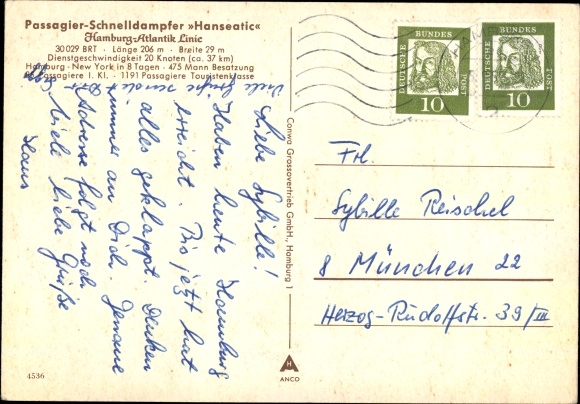 Passagier-Schnelldampfer »Hanseatic«
Hamburg-Atlantik Linie
30 029 BRT · Länge 206 m · Breite 29 m
Dienstgeschwindigkeit 20 Knoten (ca. 37 km)
Hamburg - New York in 8 Tagen · 475 Mann Besatzung
Passagiere I. Kl. · 1191 Passagiere Touristenklasse
Liebe Sybille!
Haben heute Hamburg
erreicht. Bis jetzt hat
alles geklappt. Denken
immer an Dich. Genaue
Adresse folgt noch
Viele liebe Grüße
Hans
Viele Grüße sendet
Conwa Grossovertrieb GmbH., Hamburg 1
4536
H
ANCO
DEUTSCHE BUNDES POST
10
DEUTSCHE BUNDES POST
10
Frl.
Sybille Reischel
8 München 22
Herzog-Rudolfstr. 39/III